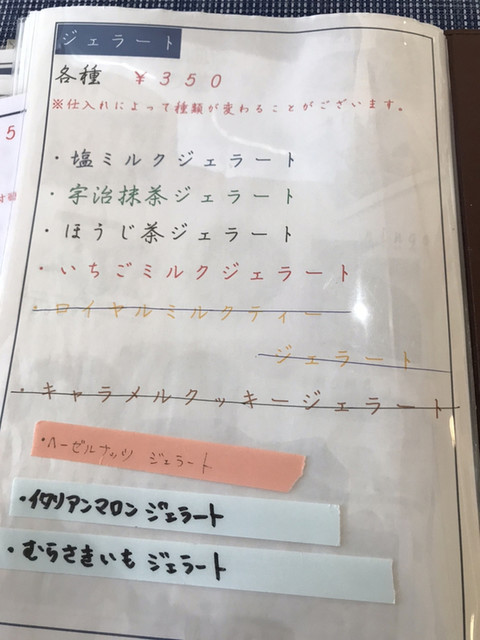 ジェラート
各種 ￥350
※仕入れによって種類が変わることがございます。
・塩ミルクジェラート
・宇治抹茶ジェラート
・ほうじ茶ジェラート
・いちごミルクジェラート
・ロイヤルミルクティー
ジェラート
・キャラメルクッキージェラート
・ヘーゼルナッツ ジェラート
・イタリアンマロン ジェラート
・むらさきいも ジェラート
5